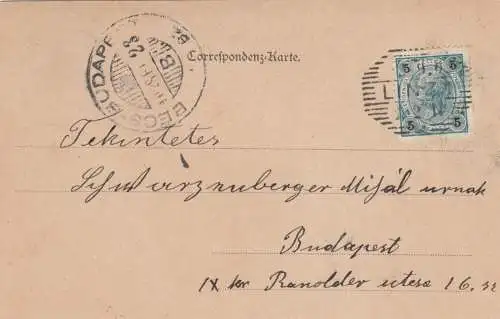 Correspondenz-Karte.
BÉCS-BUDAPEST
5 5
5 5
Tekintetes
Schwarzenberger Mihál urnak
Budapest
IX ker Ranolder utcza 16. sz